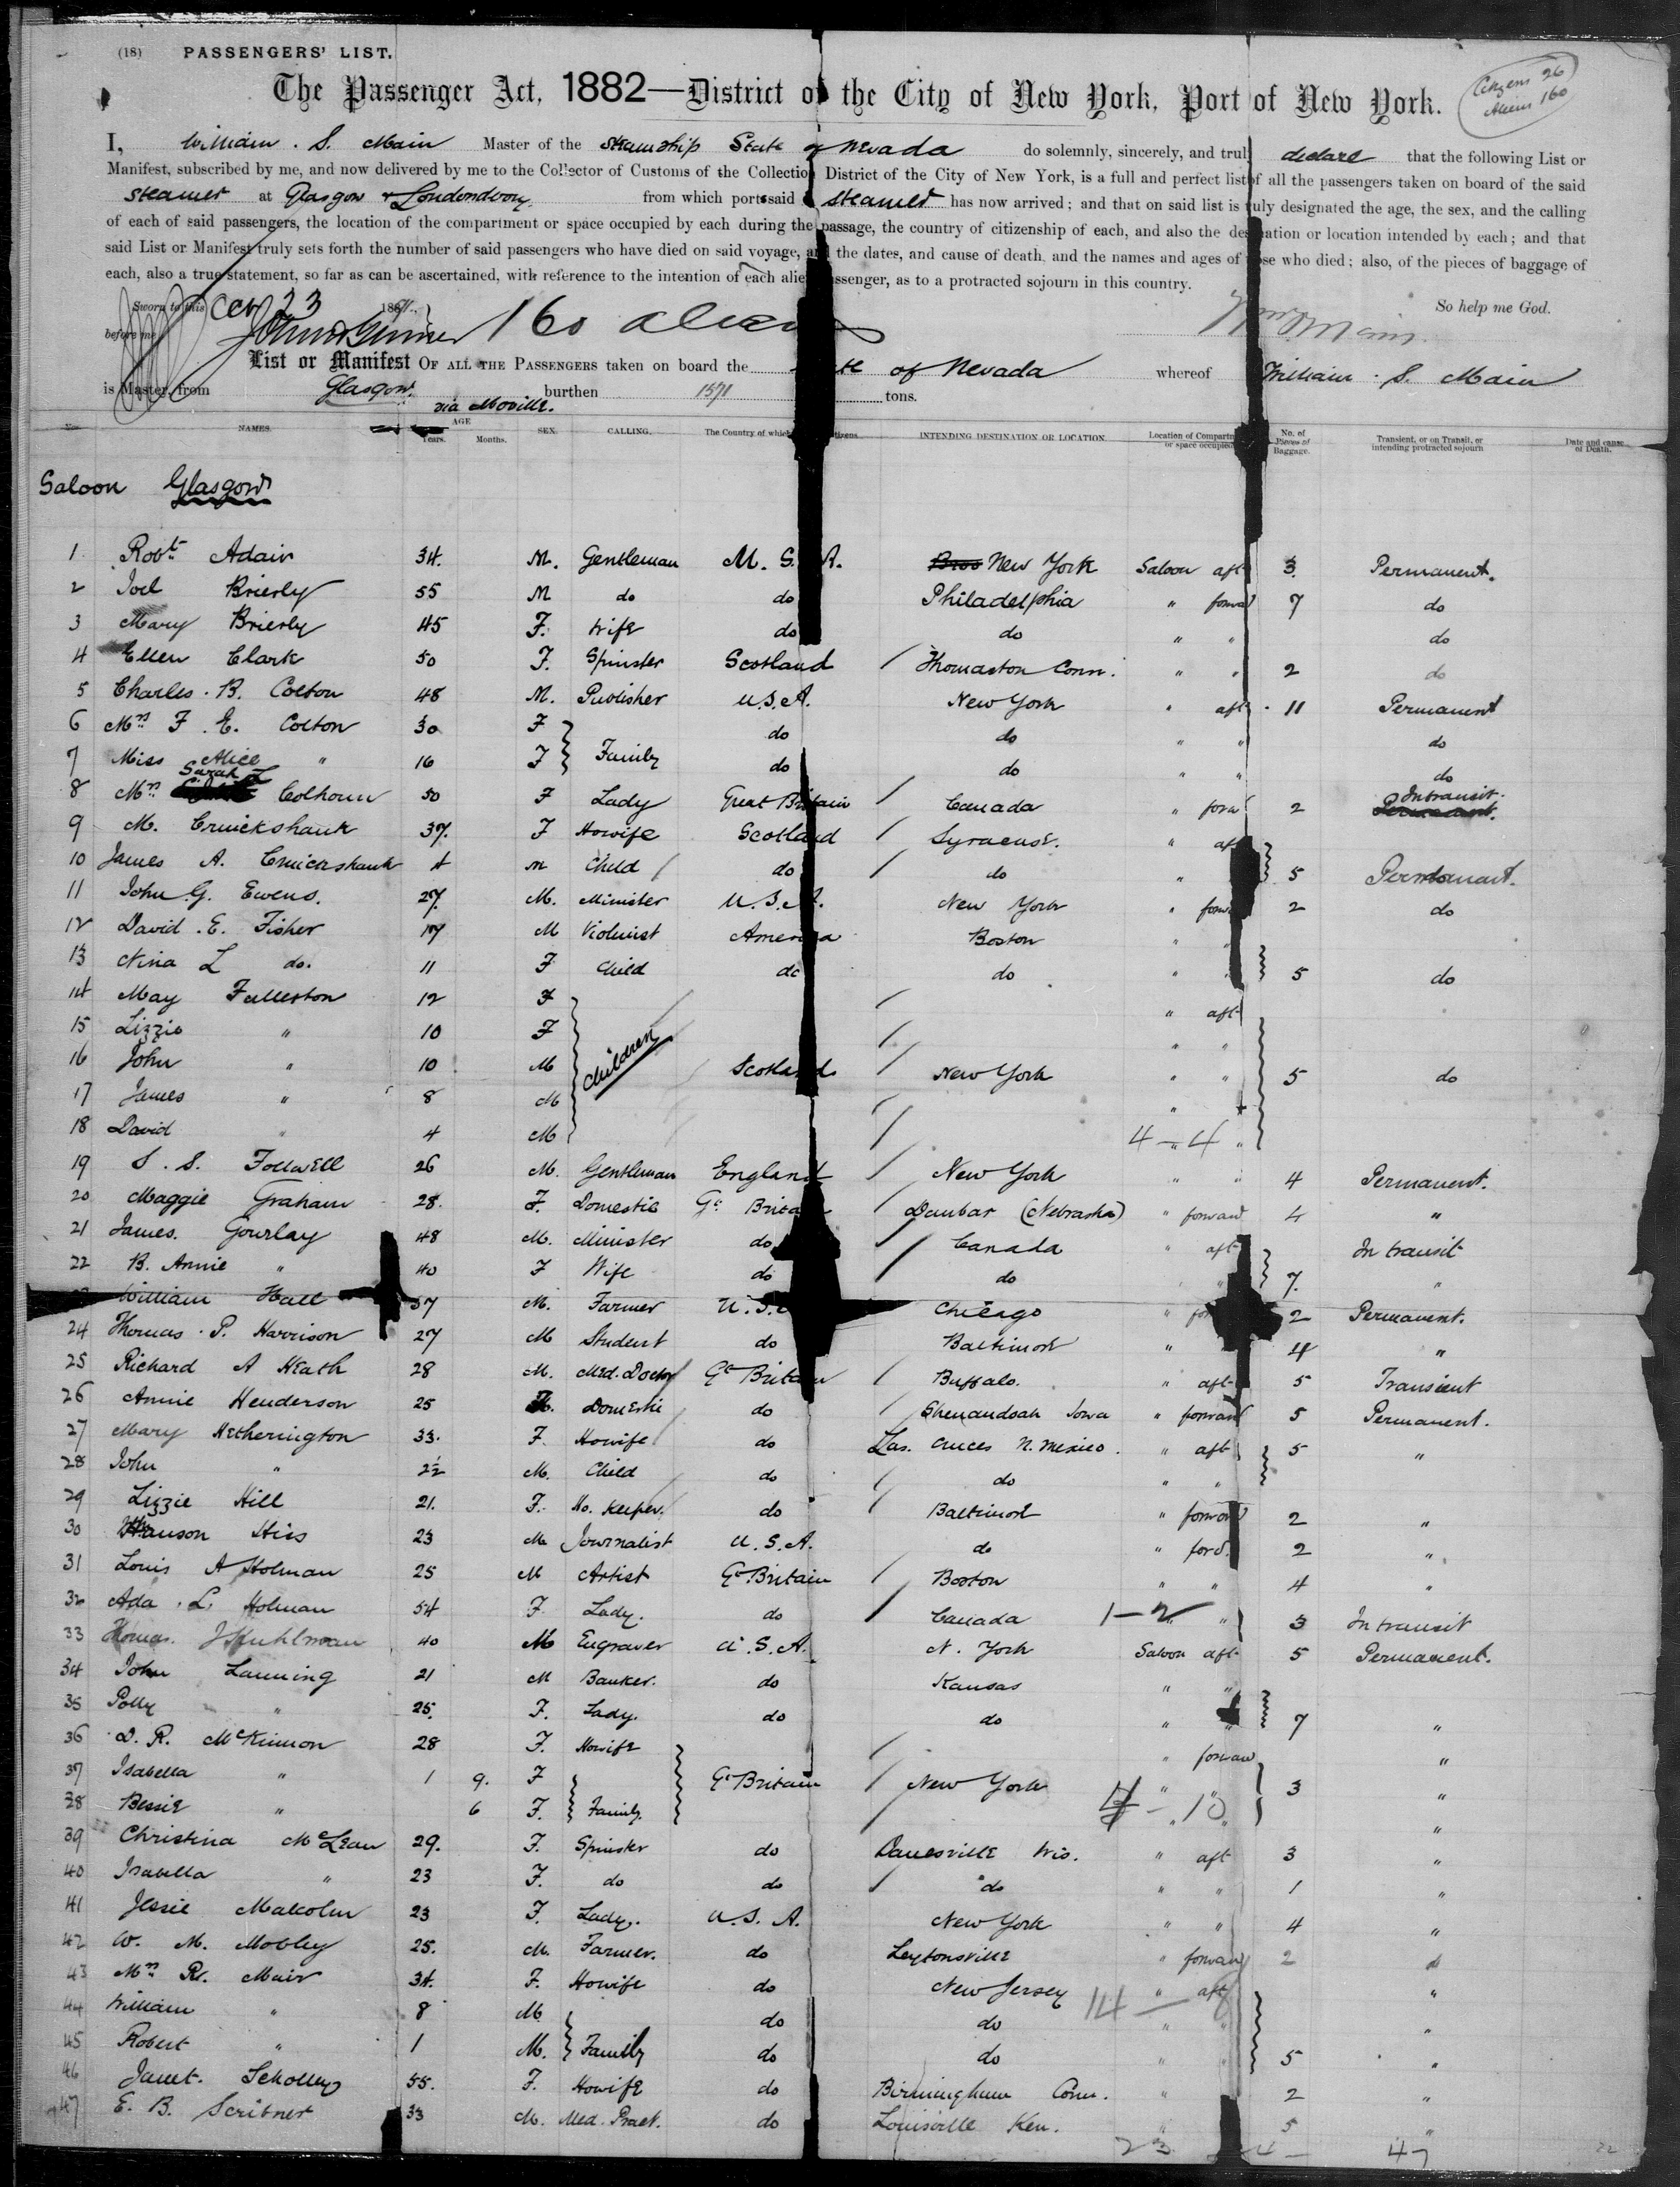 (18) PASSENGERS' LIST.
The Passenger Act, 1882—District of the City of New York, Port of New York.
Citizens 26
Aliens 160
I, William . S. Main Master of the Steamship State of Nevada do solemnly, sincerely, and truly declare that the following List or
Manifest, subscribed by me, and now delivered by me to the Collector of Customs of the Collection District of the City of New York, is a full and perfect list of all the passengers taken on board of the said
Steamer at Glasgow & Londonderry from which ports said Steamer has now arrived; and that on said list is truly designated the age, the sex, and the calling
of each of said passengers, the location of the compartment or space occupied by each during the passage, the country of citizenship of each, and also the destination or location intended by each; and that
said List or Manifest truly sets forth the number of said passengers who have died on said voyage, and the dates, and cause of death, and the names and ages of those who died; also, of the pieces of baggage of
each, also a true statement, so far as can be ascertained, with reference to the intention of each alien passenger, as to a protracted sojourn in this country.
Sworn to this 23 188
So help me God.
before me
160 Aliens
Wm S Main
List or Manifest OF ALL THE PASSENGERS taken on board the State of Nevada whereof William . S. Main
is Master, from Glasgow. via Moville. burthen 1571 tons.
NAMES. AGE Years. Months. SEX. CALLING. The Country of which Citizens INTENDING DESTINATION OR LOCATION. Location of Compartment or space occupied No. of Pieces of Baggage. Transient, or on Transit, or intending protracted sojourn Date and cause of Death.
Saloon Glasgow
1 Robt Adair 34. M. Gentleman U. S. A. New York Saloon aft 3. Permanent.
2 Joel Brierly 55 M do do Philadelphia " forwd 7 do
3 Mary Brierly 45 F. Wife do do " " do
4 Ellen Clark 50 F. Spinster Scotland / Thomaston Conn. " " 2 do
5 Charles . B. Colton 48 M. Publisher U.S.A. New York " aft 11 Permanent
6 Mrs F. E. Colton 30 F do do " " do
7 Miss Alice " 16 F Family do do " " do
8 Mrs Sarah L Colhoun 50 F Lady Great Britain / Canada " forwd 2 Intransit.
9 M. Cruickshank 37. F Howife Scotland / Syracuse. " aft
10 James A. Cruickshank 4 M Child / do / do " 5 Permanent.
11 John G. Ewens. 27. M. Minister U.S.A. New York " forwd 2 do
12 David . E. Fisher 17 M Violinist America Boston "
13 Nina L do. 11 F Child do do " 5 do
14 May Fullerton 12 F / " aft
15 Lizzie " 10 F Children / " "
16 John " 10 M Scotland / New York " " 5 do
17 James " 8 M / "
18 David " 4 M / 4 - 4 "
19 S. S. Follwell 26 M. Gentleman England / New York " " 4 Permanent.
20 Maggie Graham 28. F. Domestic Gt Britain / Dunbar (Nebraska) " forward 4 "
21 James. Gourlay 48 M. Minister do / Canada " aft In transit
22 B. Annie " 40 F Wife do / do " 7. "
William Hall 37 M. Farmer U.S.A. Chicago " forwd 2 Permanent.
24 Thomas . P. Harrison 27 M Student do Baltimore " 4 "
25 Richard A Heath 28 M. Med. Doctor Gt Britain / Buffalo. " aft 5 Transient
26 Annie Henderson 25 F. Domestic do / Shenandoah Iowa " forward 5 Permanent.
27 Mary Hetherington 33. F. Howife do Las. Cruces N. Mexico. " aft 5 "
28 John " 2½ M. Child do / do " "
29 Lizzie Hill 21. F. Ho. Keeper. do / Baltimore " forward 2 "
30 Hanson Hiss 23 M Journalist U.S.A. do " ford. 2 "
31 Louis A Holman 25 M Artist Gt Britain / Boston " " 4 "
32 Ada . L. Holman 54 F. Lady. do / Canada 1-2 " 3 In transit
33 Thomas. J Kuhlman 40 M Engraver U.S.A. N. York Saloon aft 5 Permanent.
34 John Lanning 21 M Banker. do Kansas " "
35 Polly " 25. F. Lady. do do " " 7 "
36 D. R. McKinnon 28 F. Howife / " forward "
37 Isabella " 1 9. F Gt Britain / New York " " 3 "
38 Bessie " 6 F. Family. 4 - 10 "
39 Christina McLean 29. F. Spinster do Danesville Wis. " aft 3 "
40 Isabella " 23 F. do do / do " " 1 "
41 Jessie Malcolm 23 F. Lady. U.S.A. New York " " 4 "
42 W. M. Mobley 25. M. Farmer. do Leytonsville " forward 2 "
43 Mrs R. Muir 34. F. Howife do New Jersey " aft "
44 William " 8 M do do 14 - 8 " "
45 Robert " 1 M. Family do do " 5 "
46 Janet. Scholley 55. F. Howife do Birmingham Conn. " 2 "
47 E. B. Scribner 33 M. Med. Pract. do Louisville Ken. " 5 "
23 24 - 47